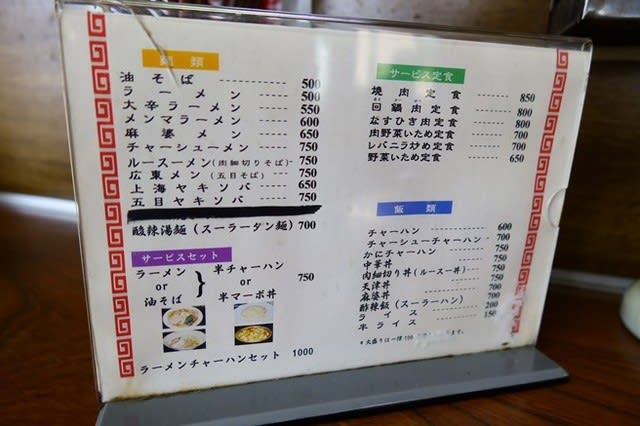 麺類
油そば 500
ラーメン 500
大辛ラーメン 550
メンマラーメン 600
麻婆メン 650
チャーシューメン 750
ルースーメン(肉細切りそば) 750
広東メン(五目そば) 750
上海ヤキソバ 650
五目ヤキソバ 750
酸辣湯麺(スーラータン麺) 700
サービスセット
ラーメン or 油そば } 半チャーハン or 半マーボ丼 750
ラーメンチャーハンセット 1000
サービス定食
焼肉定食 850
回鍋肉定食 800
なすひき肉定食 800
肉野菜いため定食 700
レバニラ炒め定食 700
野菜いため定食 650
飯類
チャーハン 600
チャーシューチャーハン 700
かにチャーハン 750
中華丼 750
肉細切り丼(ルースー丼) 750
天津丼
麻婆丼 700
酢辣飯(スーラーハン) 700
ライス 200
半ライス 150
*大盛りは一律100